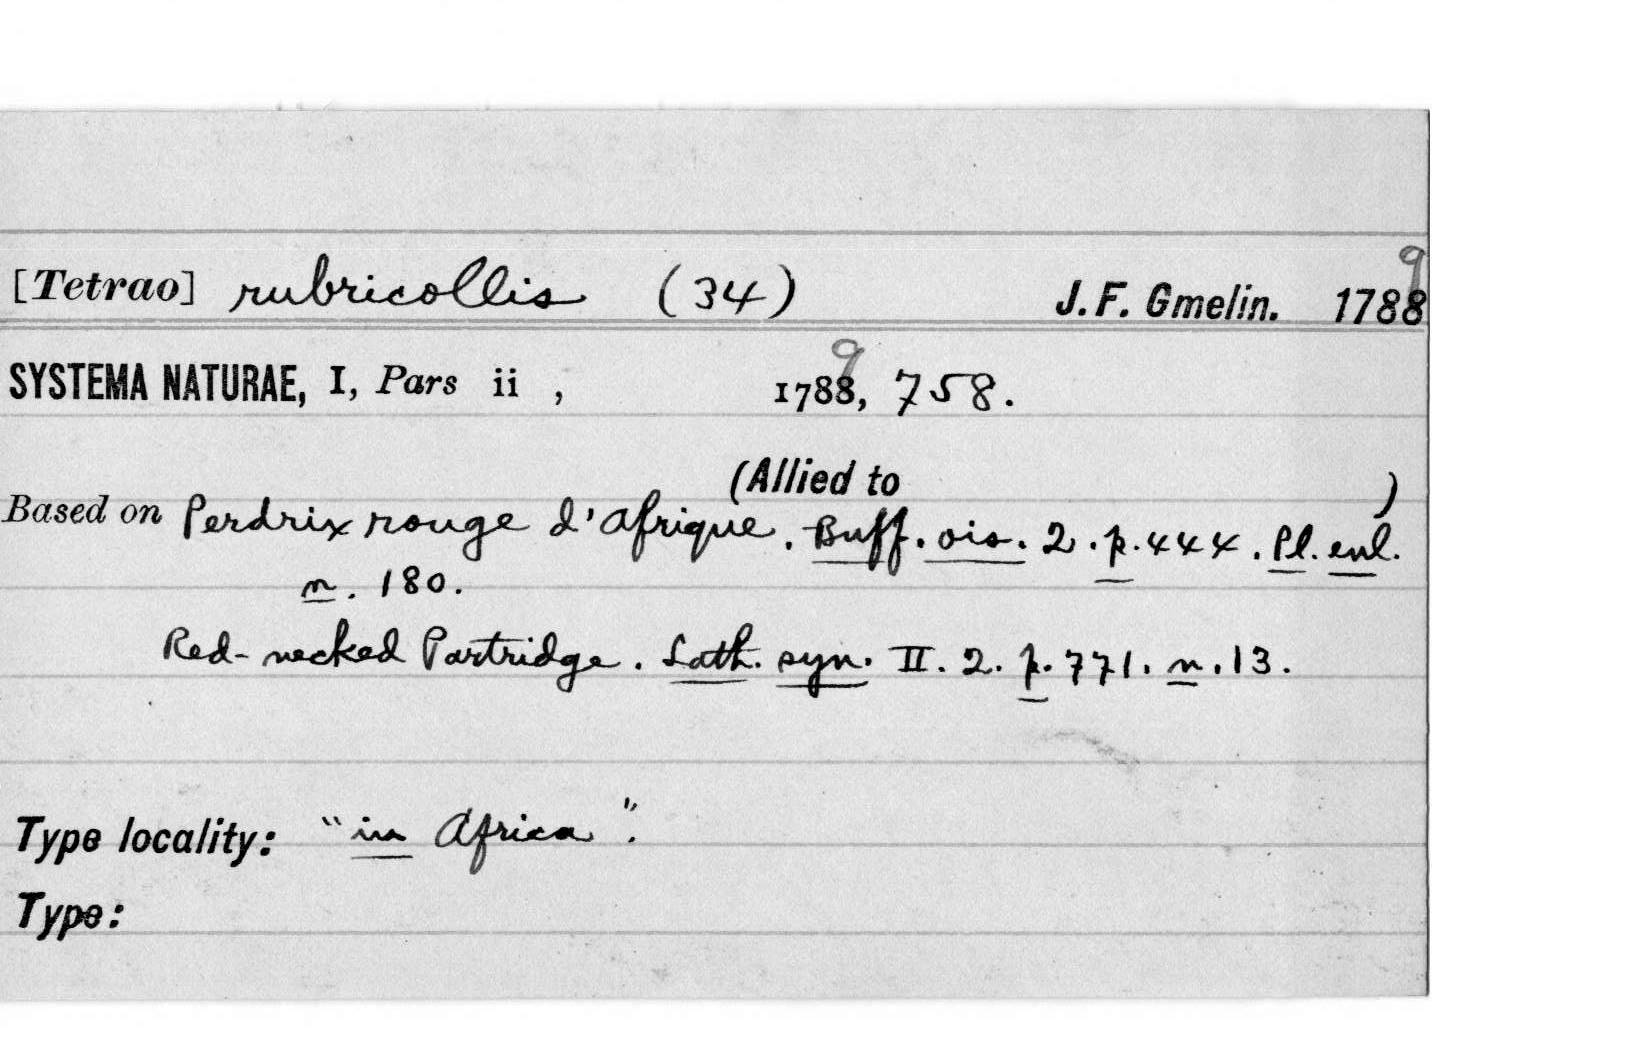 [Tetrao] rubricollis (34) J. F. Gmelin. 1788 9
SYSTEMA NATURAE, I, Pars ii , 1788 9, 758.
(Allied to )
Based on Perdrix rouge d'Afrique. Buff. ois. 2. p. 444. Pl. enl.
n. 180.
Red-necked Partridge. Lath. syn. II. 2. p. 771. n. 13.
Type locality: "in Africa".
Type: